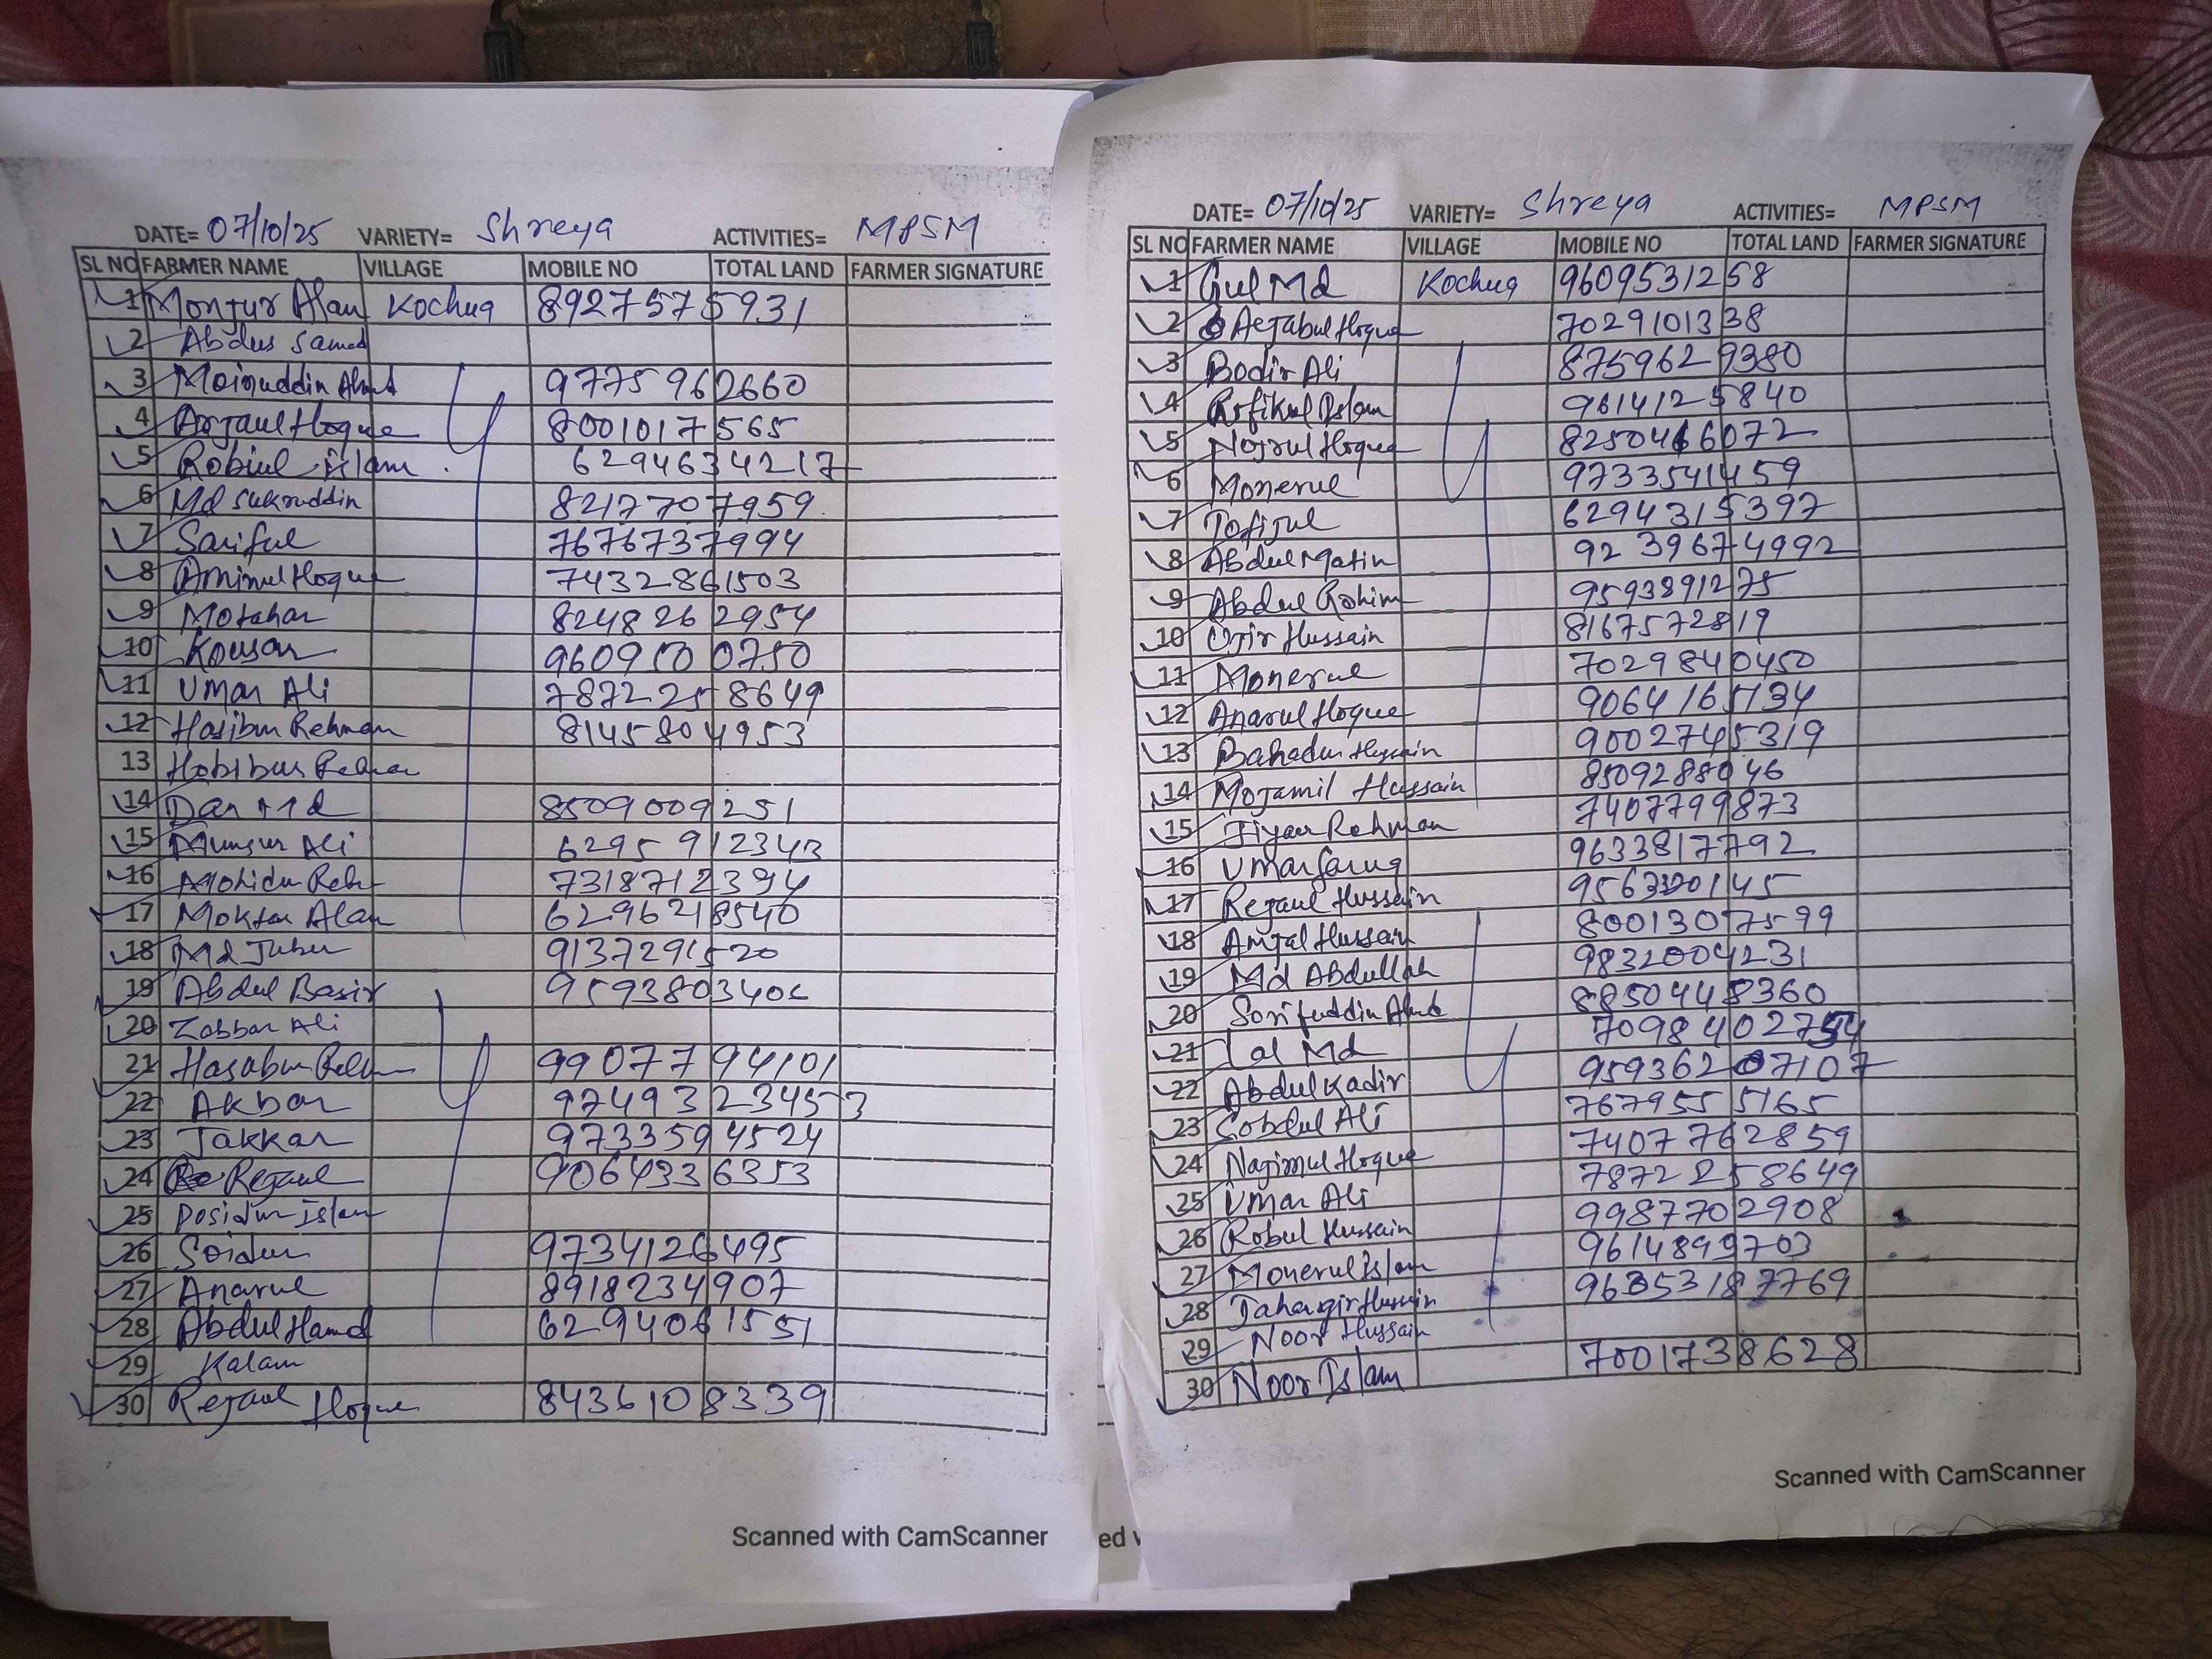 DATE= 07/10/25 VARIETY= Shreya ACTIVITIES= MPSM
SL NO FARMER NAME VILLAGE MOBILE NO TOTAL LAND FARMER SIGNATURE
1 Monjur Alam Kochua 8927575931
2 Abdus Samad
3 Moinuddin Ahmd 9775962660
4 Anjaul Hoque 8001017565
5 Robiul islam 6294634217
6 Md Sukruddin 8217707959
7 Sariful 7676737994
8 Aminul Hoque 7432861503
9 Motahar 8248262954
10 Kousar 9609500750
11 Umar Ali 7872258649
12 Hasibur Rehman 8145804953
13 Habibur Rehman
14 Dar Md 8509009251
15 Munsur Ali 6295912343
16 Mohidur Reh 7318712394
17 Moktar Alam 6296218540
18 Md Juber 9137291520
19 Abdul Basir 959380340
20 Zabbar Ali
21 Hasabur Rehm 9907794101
22 Akbar 9749323453
23 Jakkar 9733594524
24 Rejaul 9064336353
25 Islam
26 Soidur 9734126495
27 Anarul 8918234907
28 Abdul Hamd 6294061551
29 Kalam
30 Rejaul Hoque 8436108339
Scanned with CamScanner
DATE= 07/10/25 VARIETY= Shreya ACTIVITIES= MPSM
SL NO FARMER NAME VILLAGE MOBILE NO TOTAL LAND FARMER SIGNATURE
1 Gul Md Kochua 9609531258
2 Aejabul Hoque 7029101338
3 Bodir Ali 8759629380
4 Rofikul Islam 9614125840
5 Nojrul Hoque 8250466072
6 Monerul 9733541459
7 Tofijul 6294315397
8 Abdul Matin 9239674992
9 Abdul Rohim 9593891275
10 Ojir Hussain 8167572819
11 Monerul 7029840450
12 Anarul Hoque 9064165134
13 Bahadur Hussain 9002745319
14 Mojamil Hussain 8509288046
15 Jiyaur Rehman 7407799873
16 Umar faruq 9633817792
17 Rejaul Hussain
18 Amjal Hussain 8001307599
19 Md Abdullah 9832004231
20 Sorifuddin Ahmd 8850448360
21 Lal Md
22 Abdul Kadir
23 Sobdul Ali 7679555165
24 Nagimul Hoque 7407762859
25 Umar Ali 7872258649
26 Robul Hussain 9987702908
27 Monerul Islam 9614899703
28 Jahangir Hussain
29 Noor Hussain
30 Noor Islam 7001738628
Scanned with CamScanner
ed